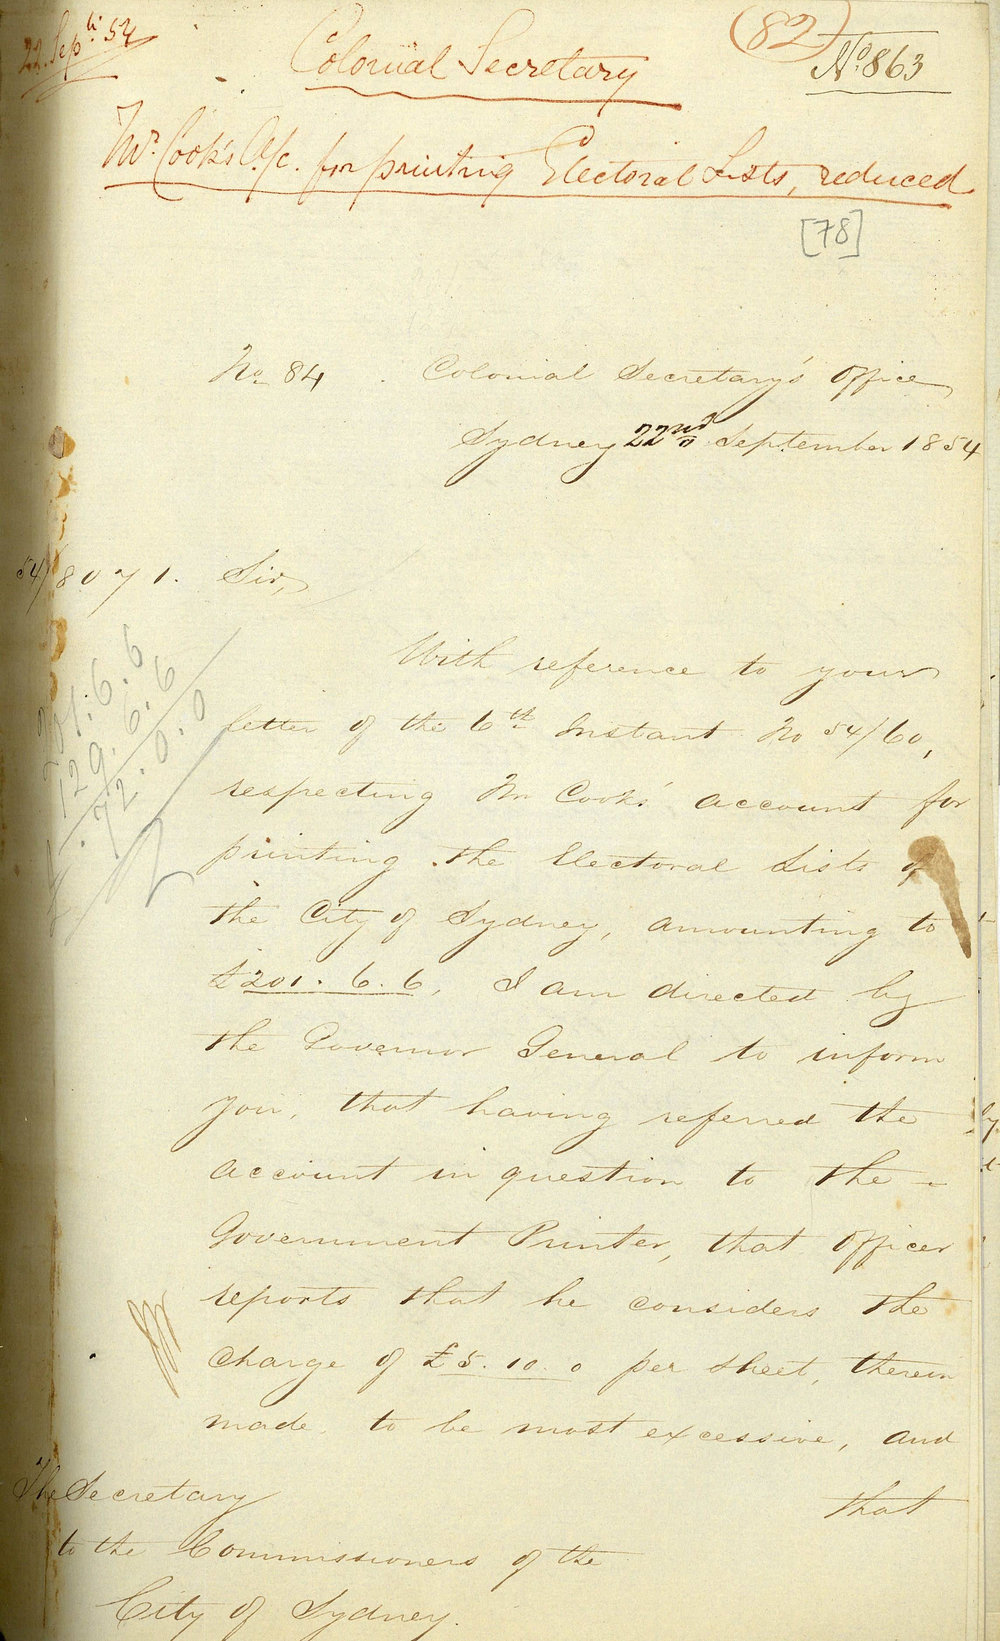 22. Sepr. 54
(82)
No. 863
Colonial Secretary
Mr. Cook's A/c. for printing Electoral Lists, reduced
[78]
No 84
Colonial Secretary's Office
Sydney 22nd September 1854
54/8071.
Sir,
With reference to your
letter of the 6th Instant No 54/60,
respecting Mr Cooks' account for
printing the Electoral Lists of
the City of Sydney, amounting to
£201. 6. 6, I am directed by
the Governor General to inform
you, that having referred the
account in question to the
Government Printer, that Officer
reports that he considers the
charge of £5. 10. 0 per sheet, therein
made to be most excessive, and
that
201. 6. 6
129. 6. 6
72. 0. 0
The Secretary
to the Commissioners of the
City of Sydney.